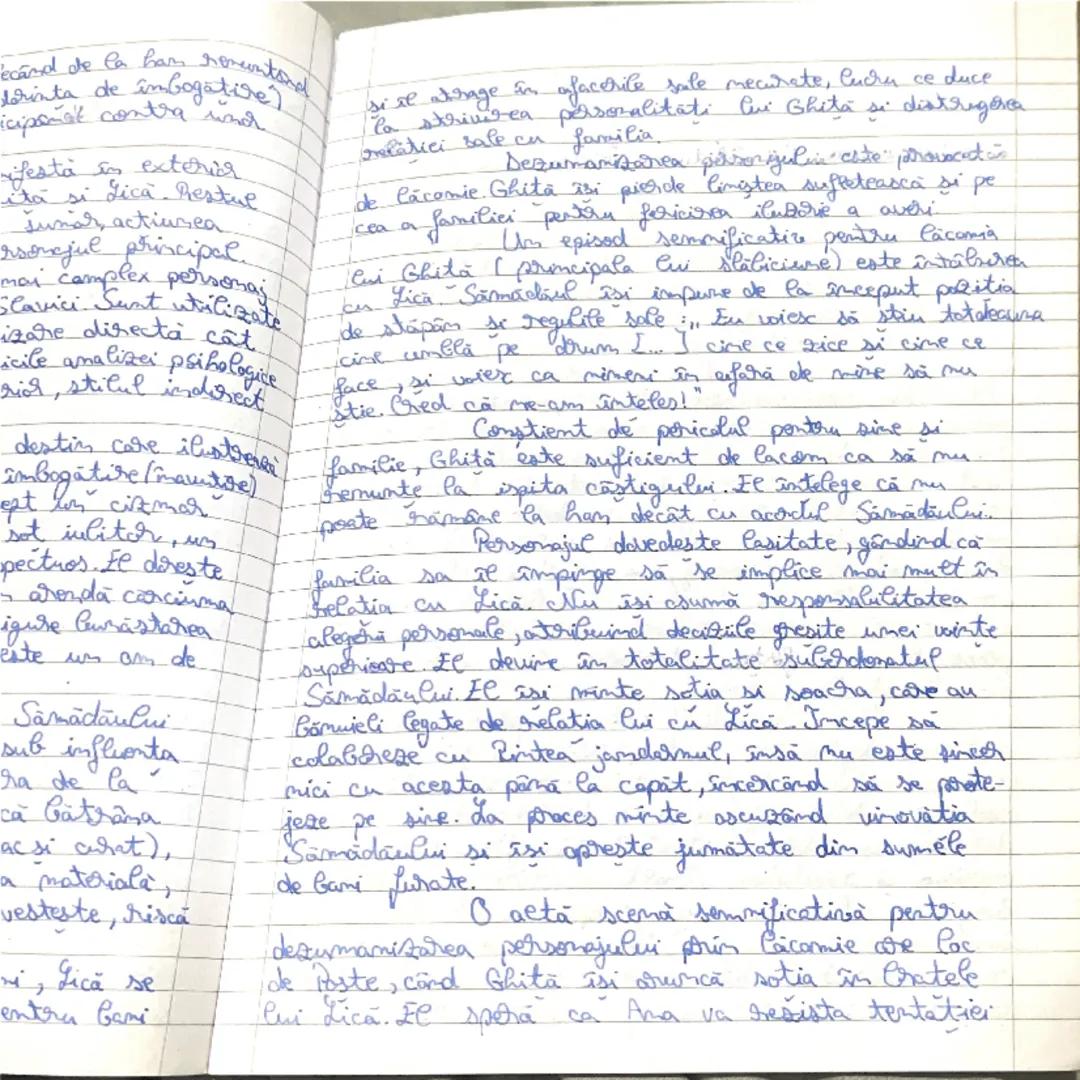 ecând de la han renunțând
dorința de îmbogățire)
icipant contra unor
nifestă în exterior
iță și Lică. Restul
sunăr, acțiunea
rsonajul principal.
mai complex personaj
Slavici. Sunt utilizate
izare directă cât
icile analizei psihologice
rior, stilul indirect
destin care ilustrează
îmbogățire (înavuțire)
ept un cizmar
soț iubitor, un
pectuos. El dorește
arendă cârciuma
igure bunăstarea
este un om de
Sămădăului
sub influența
ra de la
că bătrâna
ac și curat),
a materială,
vestește, riscă
ni, Lică se
entru bani
și îl atrage în afacerile sale necurate, lucru ce duce
la strivirea personalității lui Ghiță și distrugerea
relației sale cu familia.
Dezumanizarea personajului este provocată
de lăcomie. Ghiță își pierde liniștea sufletească și pe
cea a familiei pentru fericirea iluzorie a averi.
Un episod semnificativ pentru lăcomia
lui Ghiță (principala lui slăbiciune) este întâlnirea
cu Lică. Sămădăul își impune de la început poziția
de stăpân și regulile sale: „Eu voiesc să știu totdeauna
cine umblă pe drum [...] cine ce zice și cine ce
face, și voiesc ca nimeni în afară de mine să nu
știe. Cred că ne-am înțeles!"
Conștient de pericolul pentru sine și
familie, Ghiță este suficient de lacom ca să nu
renunțe la ispita câștigului. El înțelege că nu
poate rămâne la han decât cu acordul Sămădăului.
Personajul dovedește lașitate, gândind că
familia sa îl împinge să se implice mai mult în
relația cu Lică. Nu își asumă responsabilitatea
alegerii personale, atribuind deciziile greșite unei voințe
superioare. El devine în totalitate subordonatul
Sămădăului. El își minte soția și soacra, care au
bănuieli legate de relația lui cu Lică. Începe să
colaboreze cu Pintea jandarmul, însă nu este sincer
nici cu acesta până la capăt, încercând să se prote-
jeze pe sine. La proces minte ascuzând vinovăția
Sămădăului și își oprește jumătate din sumele
de bani furate.
O altă scenă semnificativă pentru
dezumanizarea personajului prin lăcomie are loc
de Paște, când Ghiță își aruncă soția în brațele
lui Lică. El speră ca Ana va rezista tentației